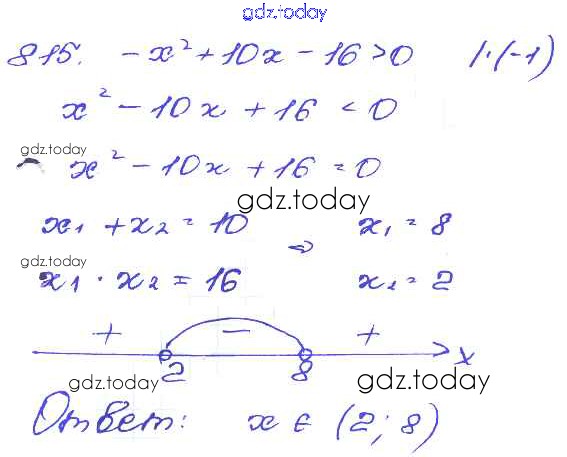 gdz.today
815. -x² + 10x - 16 > 0 |·(-1)
x² - 10x + 16 < 0
gdz.today
x² - 10x + 16 = 0
gdz.today
x₁ + x₂ = 10 ⇒ x₁ = 8
gdz.today
x₁ · x₂ = 16 x₂ = 2
+ − +
2 8 x
gdz.today gdz.today
Ответ: x ∈ (2; 8)